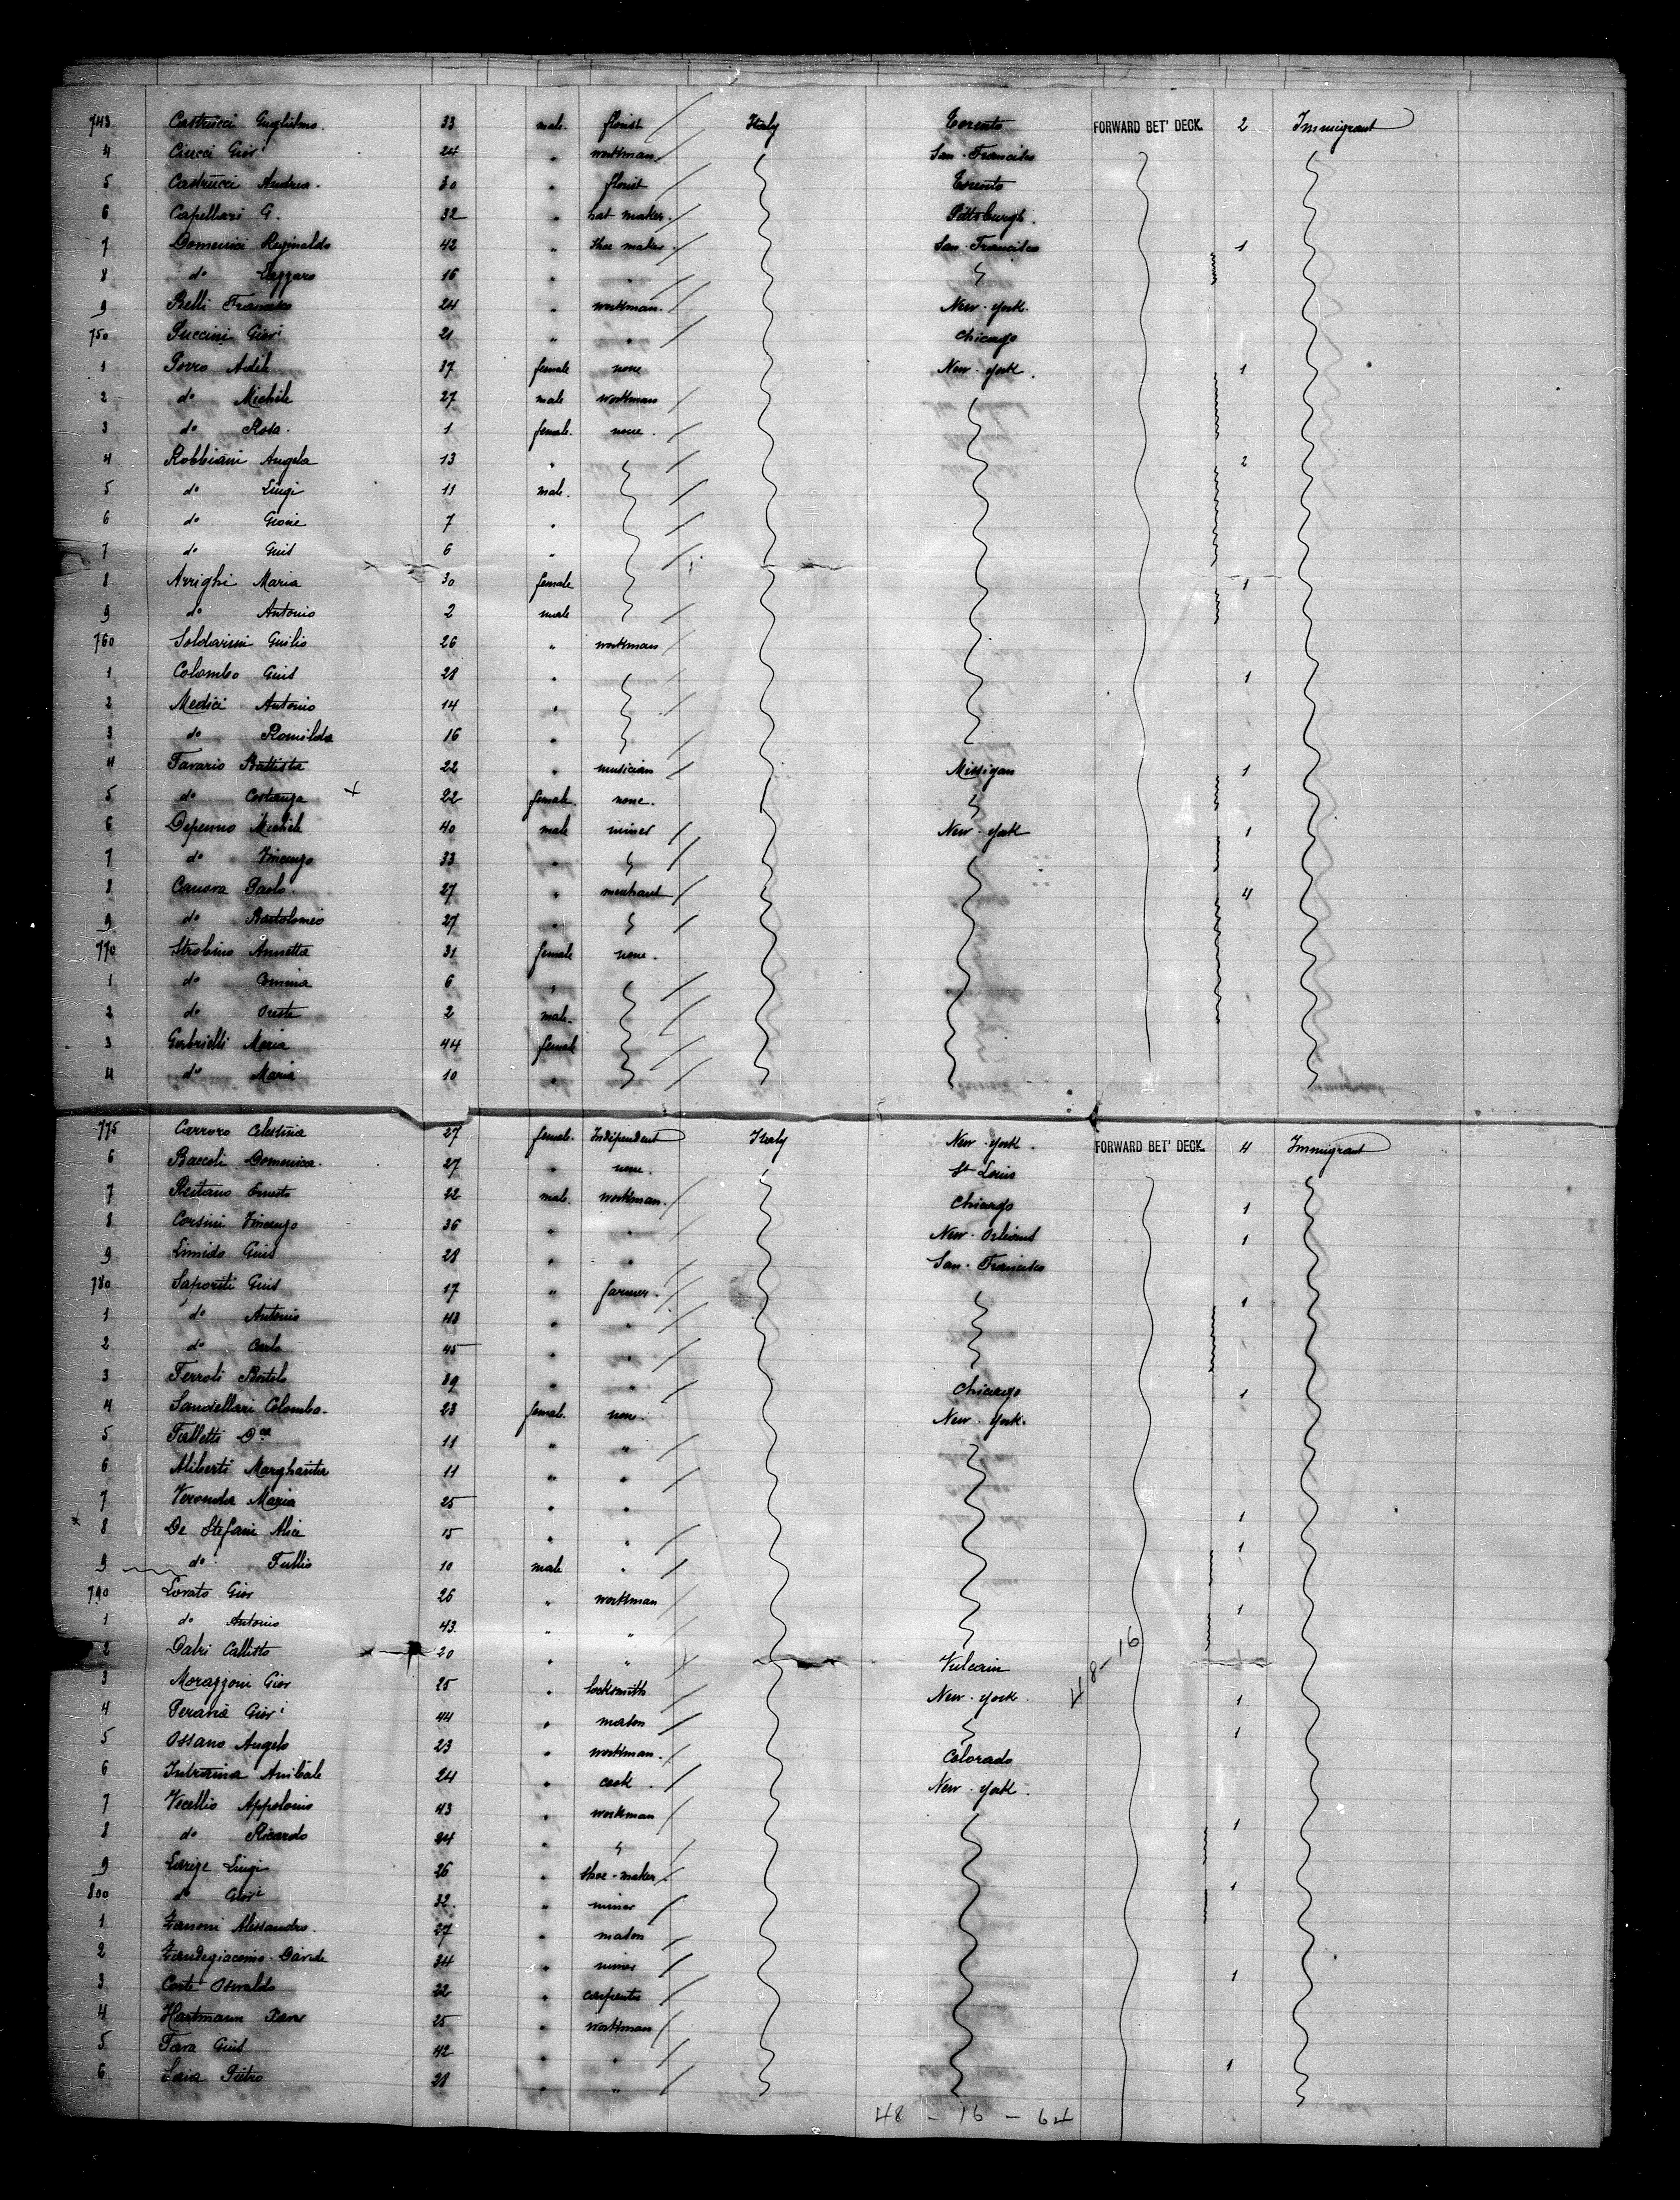 743 Castrucci Guglielmo. 33 male. florist Italy Toronto FORWARD BET' DECK. 2 Immigrant
4 Ciucci Giov.i 24 " workman San-Francisco
5 Castrucci Andrea. 30 " florist Toronto
6 Capellari G. 32 " hat maker. Pittsburgh.
7 Domenici Reginaldo 42 " shoe maker San-Francisco 1
8 do Lazzaro 16 " "
9 Belli Francesco 24 " workman. New-york.
750 Puccini Giov.i 21 " " Chicago
1 Povro Adele 37 female none New-york. 1
2 do Michele 27 male workman
3 do Rosa. 1 female. none.
4 Robbiani Angela 13 " 2
5 do Luigi 11 male.
6 do Giosie 7 "
7 do Guis 6 "
8 Arrighi Maria 30 female 1
9 do Antonio 2 male
760 Soldavini Guilio 26 " workman
1 Colombo Guis 28 " 1
2 Medici Antonio 14 "
3 do Romilda 16 "
4 Favario Battista 22 " musician Missigan 1
5 do Costanza x 22 female. none.
6 Depenno Michele 40 male miner New-york 1
7 do Vincenzo 33 "
8 Canova Paolo. 27 " merchant 4
9 do Bartolomeo 27 "
770 Strobino Annetta 31 female none.
1 do 6 "
2 do Oreste 2 male.
3 Gabrielli Maria 44 female
4 do Maria 10 "
775 Carraro Celestina 27 female. Indépendent Italy New-york. FORWARD BET' DECK. 4 Immigrant
6 Baccoli Domenica. 27 " none. St Louis
7 Ernesto 22 male. workman. Chicago 1
8 Corsini Vincenzo 36 " " New-Orleans 1
9 Limido Guis 28 " " San-Francisco
780 Saporiti Guis 17 " farmer. 1
1 do Antonio 48 " "
2 do Carlo 45 " "
3 Ferroli Bortolo 39 " " Chicago 1
4 Colomba. 23 female. none. New-york.
5 Falletti D.ca 11 " "
6 Aliberti Margharita 11 " "
7 Maria 25 " " 1
8 De Stefani Alice 15 " " 1
9 do Tullio 10 male "
790 Lovato Giov 26 " workman 1
1 do Antonio 43. " "
2 Dalri Callisto 20 " " Vulcain
3 Morazzoni Giov 25 " locksmith New-york. 1
4 Giov.i 44 " mason 1
5 Ossano Angelo 23 " workman. Colorado
6 Anibale 24 " cook. New-york.
7 Vecellio Appolonio 43 " workman 1
8 do Ricardo 24 "
9 Luigi 26 " shoe-maker 1
800 do Giov.i 32. " miner
1 Zanoni Alessandro. 27 " mason
2 Zandegiacomo-Davide 34 " miner 1
3 Corte Osvaldo 22 " carpenter
4 Hartmann 25 " workman
5 Fava Guis 42 " " 1
6 Pietro 28 " "
48-16
48 - 16 - 64